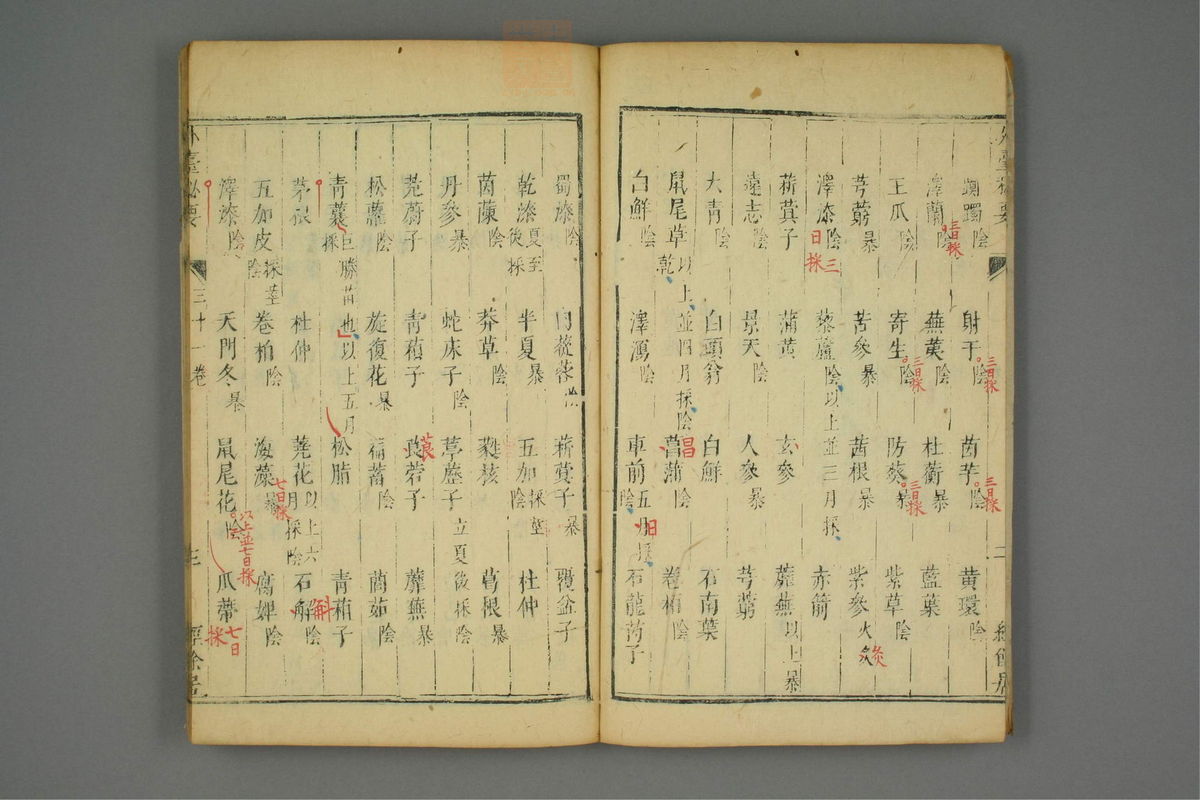 躑躅陰 射干陰 三日採 茵芋陰 三日採 黃環陰
澤蘭陰 三日採 蕪荑陰 杜蘅暴 藍葉
王瓜陰 寄生陰 三日採 防葵暴 三日採 紫草陰
芎藭暴 苦參暴 茜根暴 紫參火炙 灸
澤漆陰 三日採 藜蘆陰以上並三月採 赤箭
菥蓂子 蒲黃 玄參 蘼蕪以上暴
遠志陰 景天陰 人參暴 芎藭
大青陰 白頭翁 白鮮 石南葉
鼠尾草以上並四月採陰乾 菖蒲陰 昌 卷柏陰
白鮮陰 澤瀉陰 車前五月採陰 日 石龍芮子
外臺秘要 三十一卷
蜀漆陰 肉蓯蓉陰 菥蓂子暴 覆盆子
乾漆夏至後採 半夏暴 五加採莖陰 杜仲
茵蔯陰 莽草陰 蕤核 葛根暴
丹參暴 蛇床子陰 葶藶子立夏後採陰
茺蔚子 青葙子 莨菪子 莨 蘼蕪暴
松蘿陰 旋復花暴 萹蓄陰 䕡茹陰
青蘘巨勝苗也採 以上五月 松脂 青葙子
茅根 杜仲 蕘花以上六月採陰 石斛陰 斛
五加皮採莖陰 卷柏陰 海藻暴 七日採 腐婢陰
澤漆陰 天門冬暴 鼠尾花陰 以上並七日採 瓜蔕 七日採
外臺秘要 三十一卷 經餘居